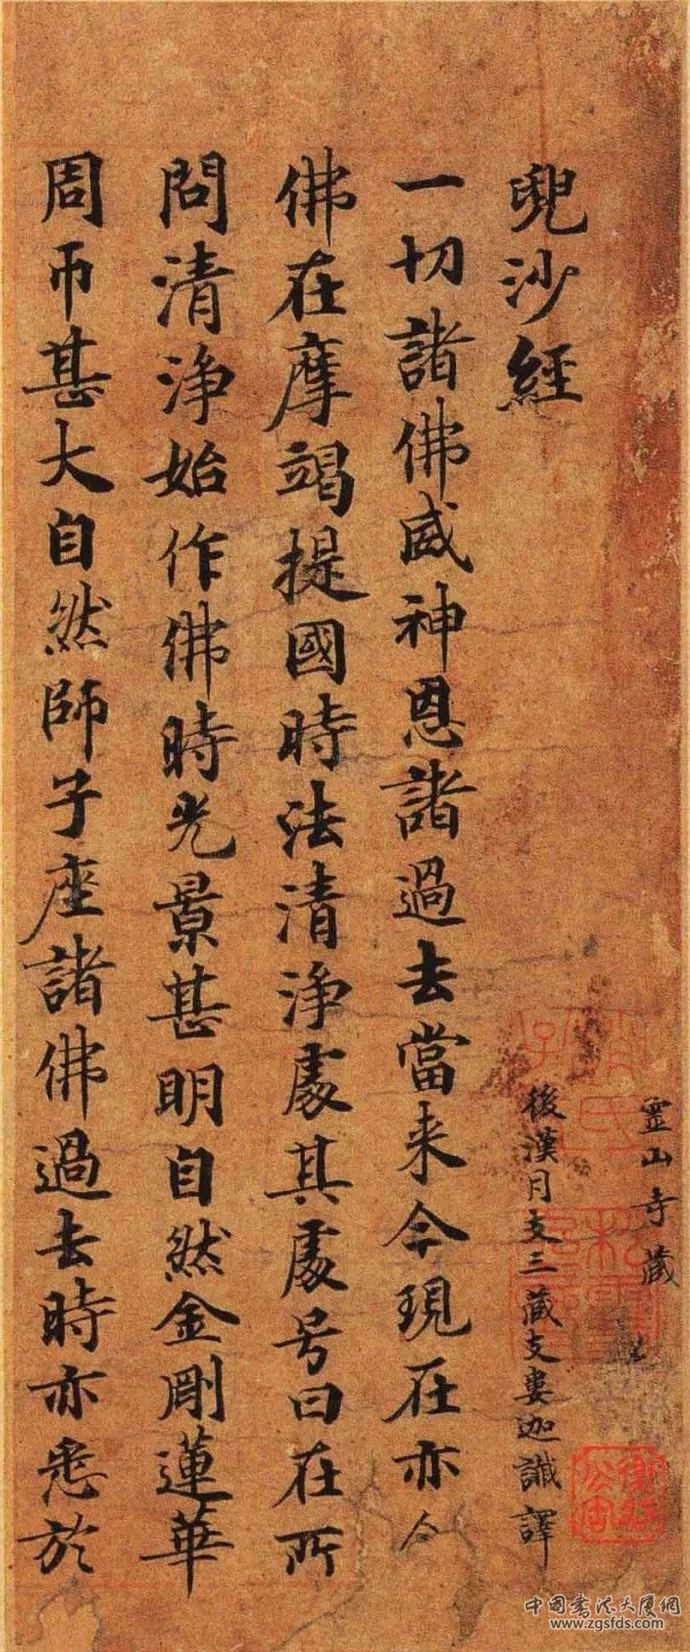 靈山寺藏
兜沙經
後漢月支三藏支婁迦讖譯
一切諸佛威神恩諸過去當来今現在亦尒
佛在摩竭提國時法清淨處其處号曰在所
問清淨始作佛時光景甚明自然金剛蓮華
周帀甚大自然師子座諸佛過去時亦悉於
中國書法大廈網
www.zgsfds.com